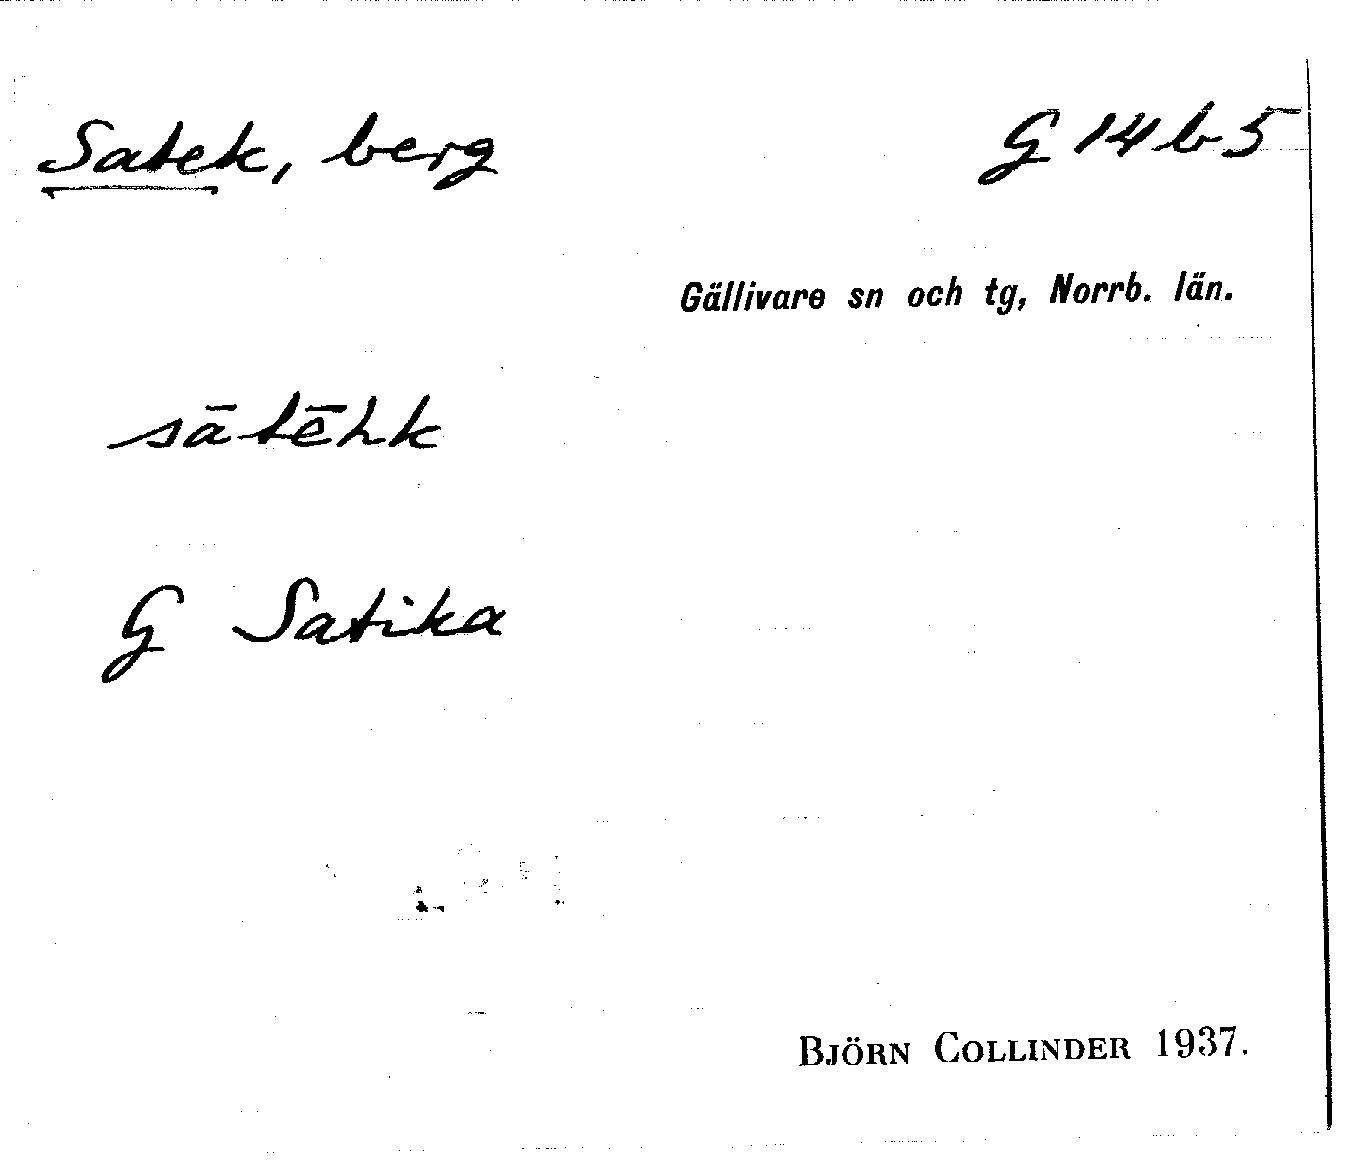 Satek, berg
G 14 b 5
Gällivare sn och tg, Norrb. län.
sātēhk
G Satika
BJÖRN COLLINDER 1937.